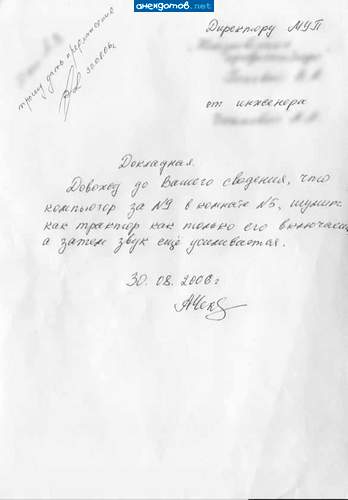 анекдотов.net
Директору МУП
от инженера
прошу дать
Докладная.
Довожу до Вашего сведения, что
компьютер за №9 в комнате №5, шумит
как трактор как только его включаешь
а затем звук ещё усиливается.
30.08.2006г